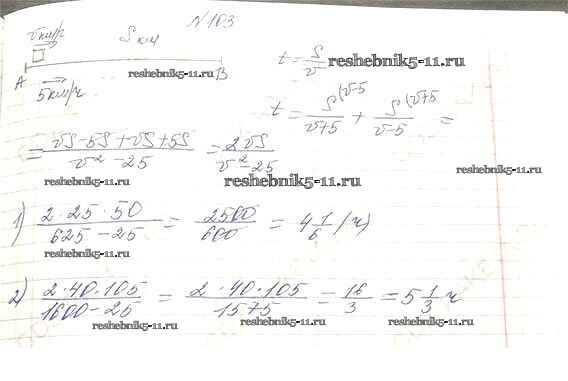 № 103
v км/ч S км
A B
5 км/ч
t = S/v
reshebnik5-11.ru
t = S(v-5/v+5 + S(v+5/v-5 =
= vS-5S+vS+5S/v²-25 = 2vS/v²-25
reshebnik5-11.ru
reshebnik5-11.ru
reshebnik5-11.ru
1) 2·25·50/625-25 = 2500/600 = 4 1/6 (ч)
reshebnik5-11.ru
2) 2·40·105/1600-25 = 2·40·105/1575 = 16/3 = 5 1/3 ч
reshebnik5-11.ru reshebnik5-11.ru reshebnik5-11.ru